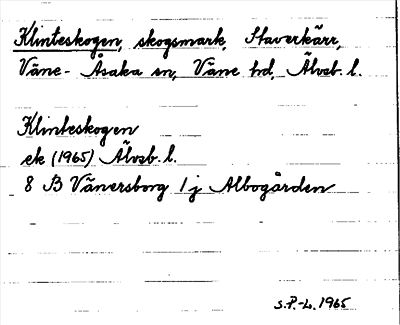 Klinteskogen, skogsmark, Staverkärr,
Väne-Åsaka sn, Väne hd, Älvsb. l.
Klinteskogen
ek (1965) Älvsb. l.
8 B Vänersborg 1 j Albogården
S.P.-L. 1965